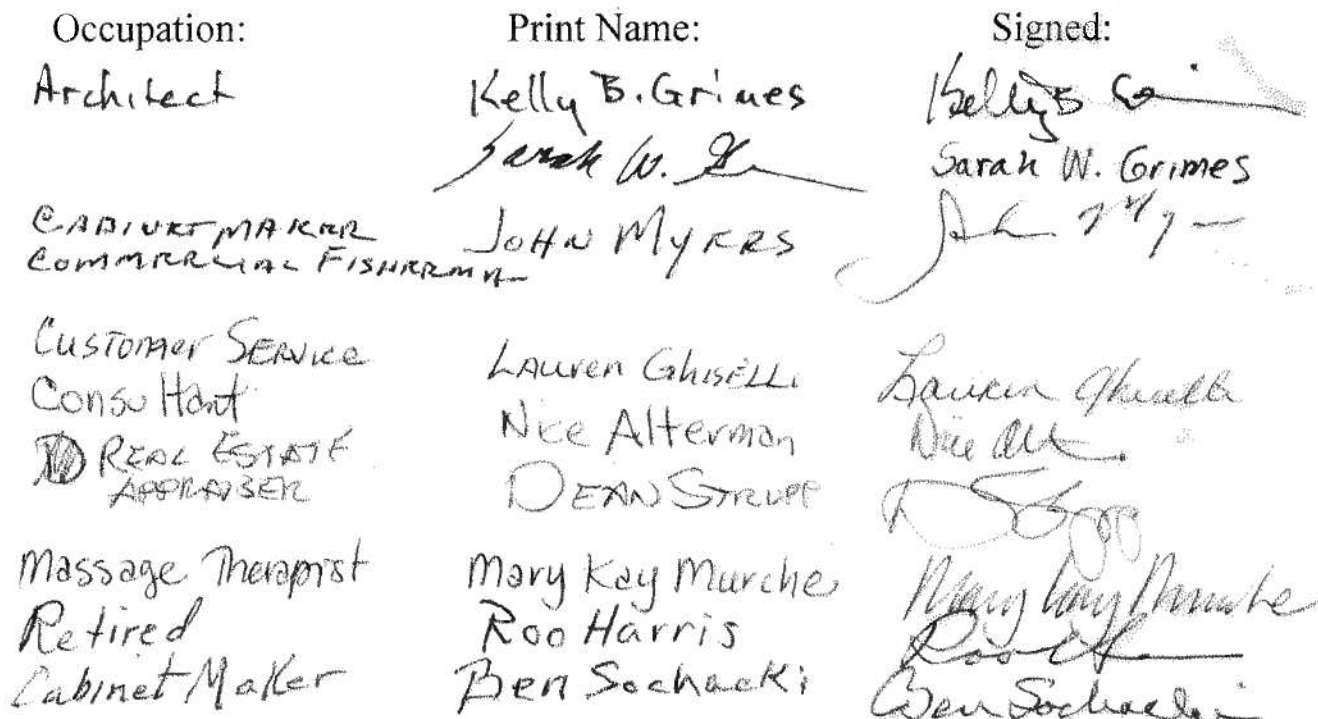 Occupation: Print Name: Signed:
Architect Kelly B. Grimes Kelly B
Sarah W. Sarah W. Grimes
CABINET MAKER JOHN MYERS
COMMERCIAL FISHERMAN
Customer Service Lauren Ghiselli Lauren Ghiselli
Consultant Nice Alterman Nice Alt
REAL ESTATE DEAN STRUPP
APPRAISER
Massage Therapist Mary Kay Murche Mary Kay Murche
Retired Roo Harris Roo H
Cabinet Maker Ben Sochacki Ben Sochacki